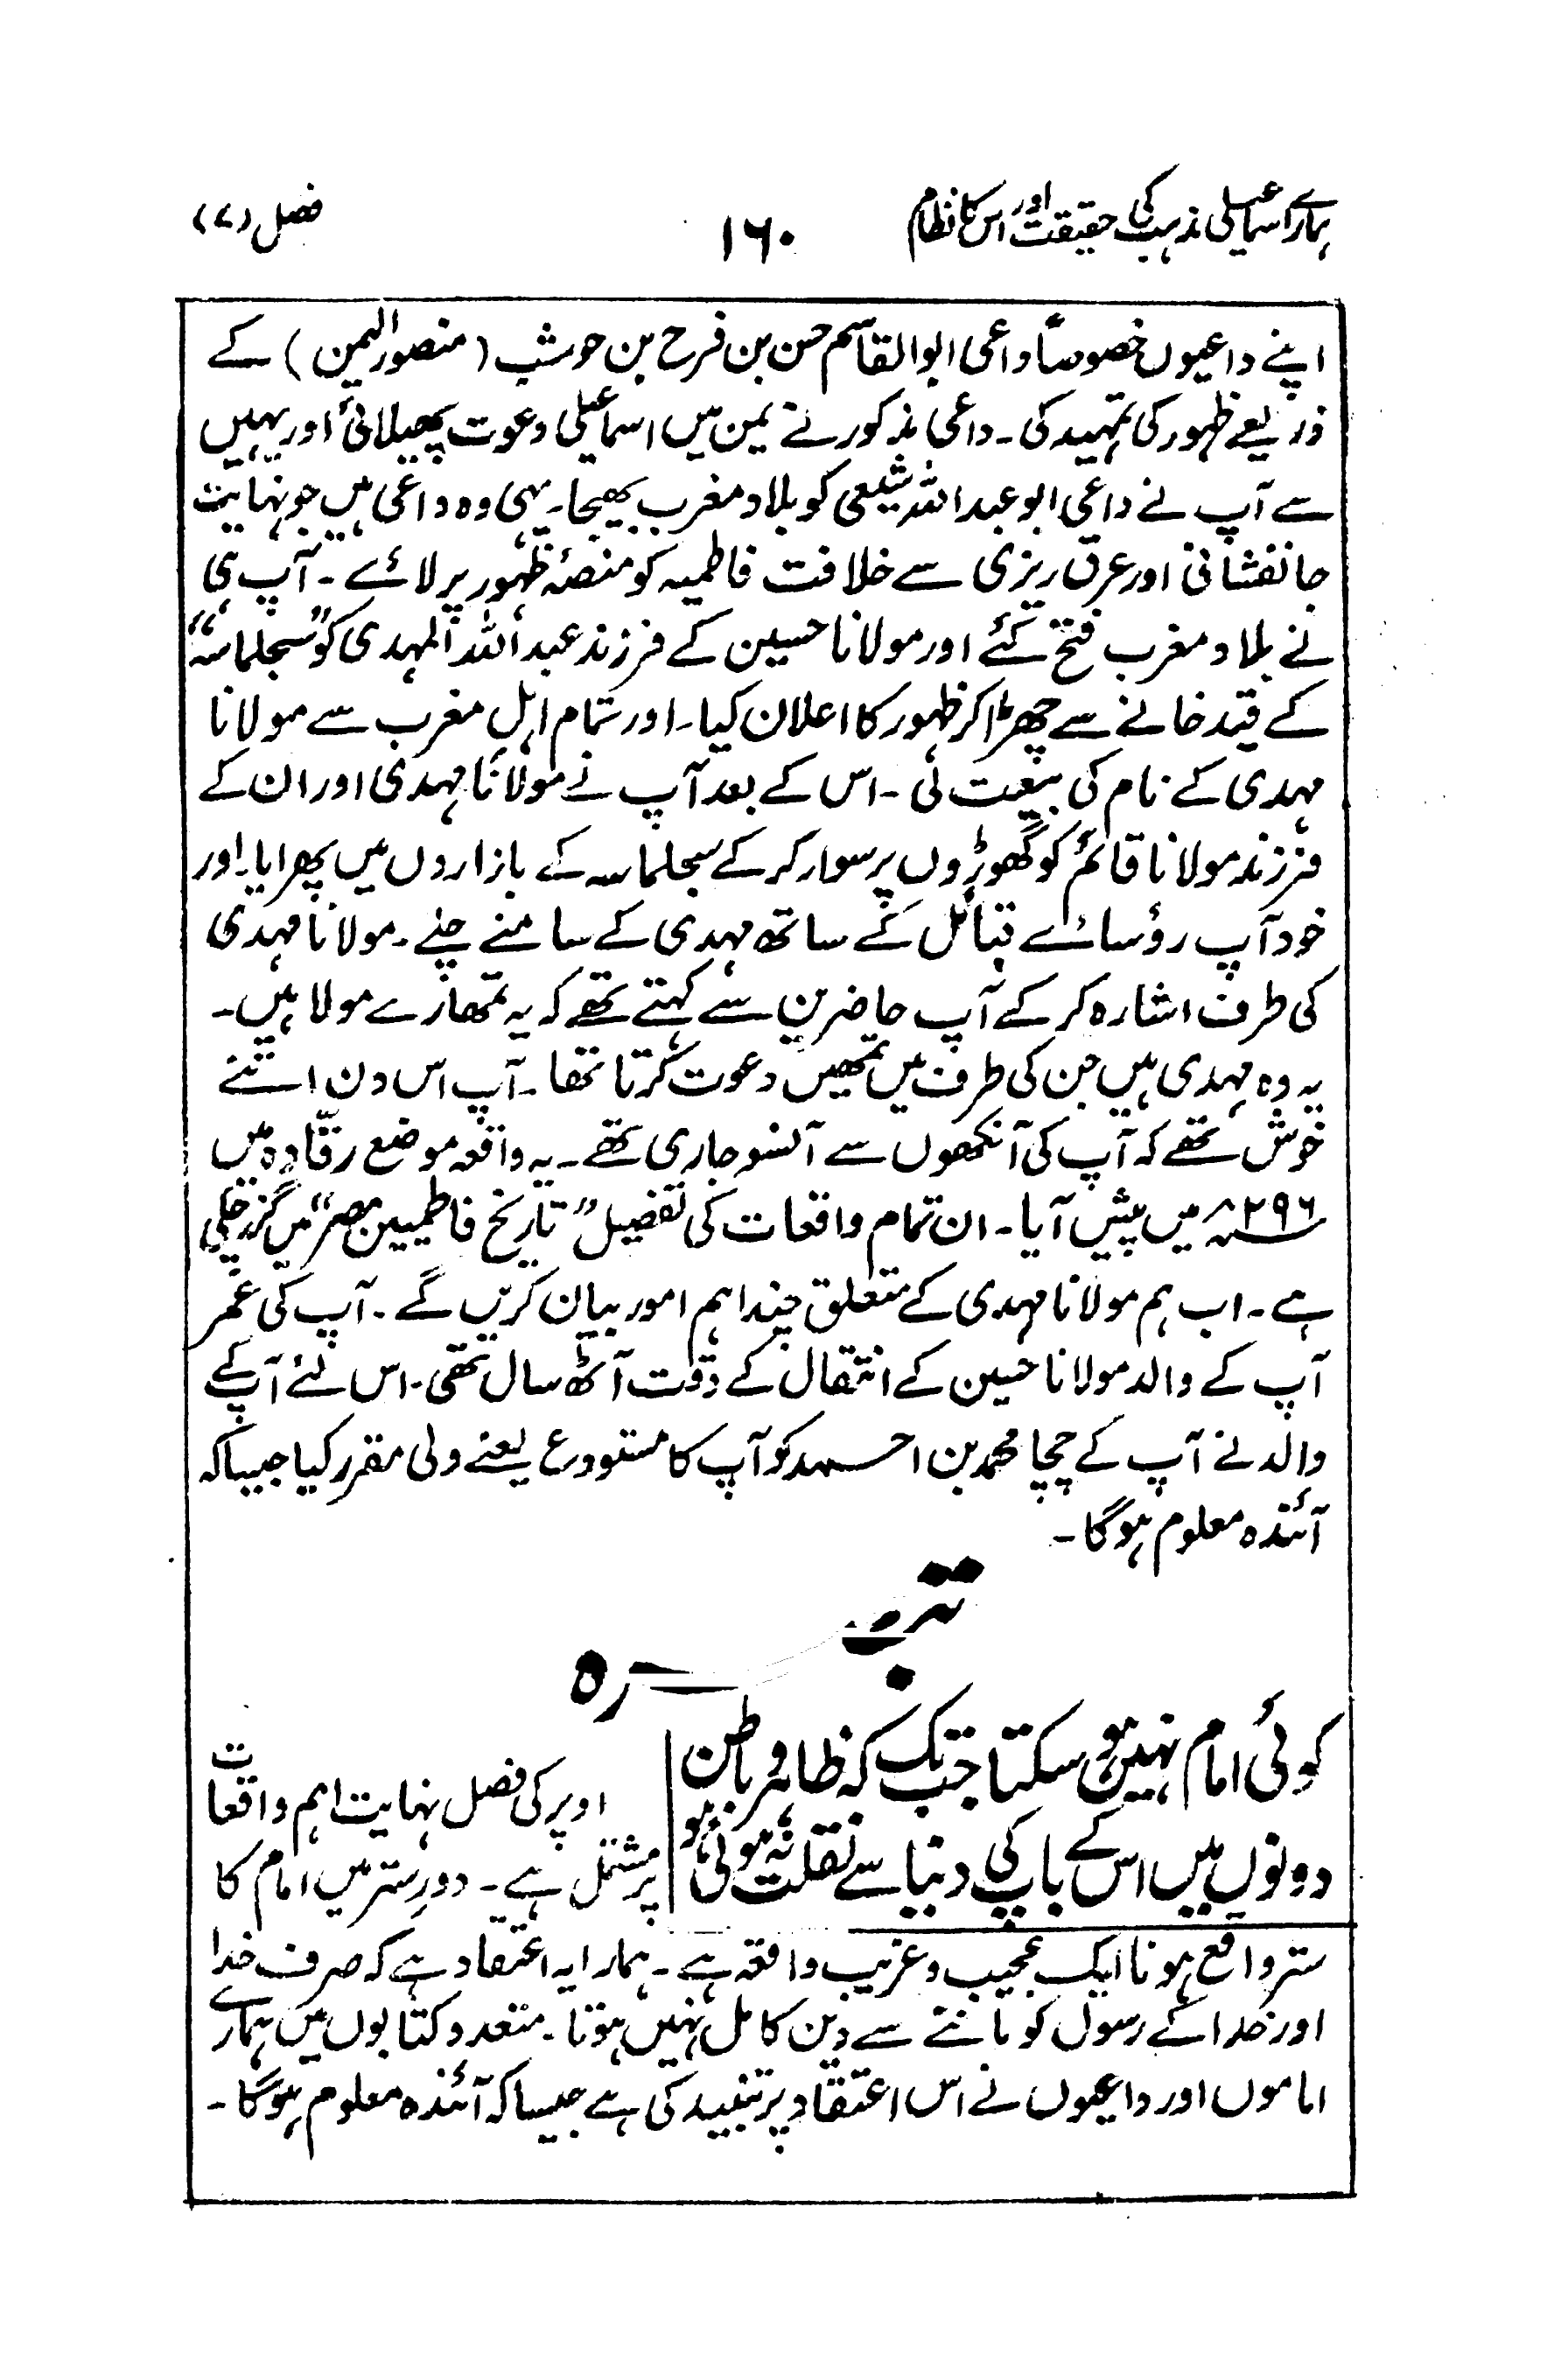 ہمارے اسماعیلی مذہب کی حقیقت اور اس کا نظام
۱۶۰
فصل (۷)
اپنے داعیوں خصوصاً داعی ابوالقاسم حسن بن فرح بن حوشب (منصور الیمن) کے
ذریعے ظہور کی تمہید کی ۔ داعی مذکور نے یمن میں اسماعیلی دعوت پھیلائی اور یہیں
سے آپ نے داعی ابو عبد اللہ شیعی کو بلاد مغرب بھیجا۔ یہی وہ داعی ہیں جو نہایت
جانفشانی اور عرق ریزی سے خلافت فاطمیہ کو منصۂ ظہور پر لائے ۔ آپ ہی
نے بلاد مغرب فتح کئے اور مولانا حسین کے فرزند عبد اللہ المہدی کو ”سجلماسہ“
کے قید خانے سے چھڑا کر ظہور کا اعلان کیا۔ اور تمام اہلِ مغرب سے مولانا
مہدی کے نام کی بیعت لی ۔ اس کے بعد آپ نے مولانا مہدی اور ان کے
فرزند مولانا قائم کو گھوڑوں پر سوار کر کے سجلماسہ کے بازاروں میں پھرایا۔ اور
خود آپ رؤسائے قبائل کے ساتھ مہدی کے سامنے چلے ۔ مولانا مہدی
کی طرف اشارہ کر کے آپ حاضرین سے کہتے تھے کہ یہ تمھارے مولا ہیں ۔
یہ وہ مہدی ہیں جن کی طرف میں تمھیں دعوت کرتا تھا ۔ آپ اس دن اتنے
خوش تھے کہ آپ کی آنکھوں سے آنسو جاری تھے ۔ یہ واقعہ موضع رقّادہ میں
۲۹۶ھ میں پیش آیا ۔ ان تمام واقعات کی تفصیل ”تاریخ فاطمیین مصر“ میں گزر چکی
ہے ۔ اب ہم مولانا مہدی کے متعلق چند اہم امور بیان کریں گے ۔ آپ کی عمر
آپ کے والد مولانا حسین کے انتقال کے وقت آٹھ سال تھی ۔ اس لئے آپ کے
والد نے آپ کے چچا محمد بن احمد کو آپ کا مستودع یعنے ولی مقرر کیا جیسا کہ
آئندہ معلوم ہوگا ۔
تبصرہ
کوئی امام نہیں ہو سکتا جب تک کہ ظاہر و باطن
دونوں میں اس کے باپ کی دنیا سے نقلت نہ ہوئی ہو
اوپر کی فصل نہایت اہم واقعات
پر مشتمل ہے ۔ دورِ ستر میں امام کا
ستر واقع ہونا ایک عجیب و غریب واقعہ ہے ۔ ہمارا یہ اعتقاد ہے کہ صرف خدا
اور خدا کے رسول کو ماننے سے دین کامل نہیں ہوتا ۔ متعدد کتابوں میں ہمارے
اماموں اور داعیوں نے اس اعتقاد پر تنبیہ کی ہے جیسا کہ آئندہ معلوم ہوگا ۔